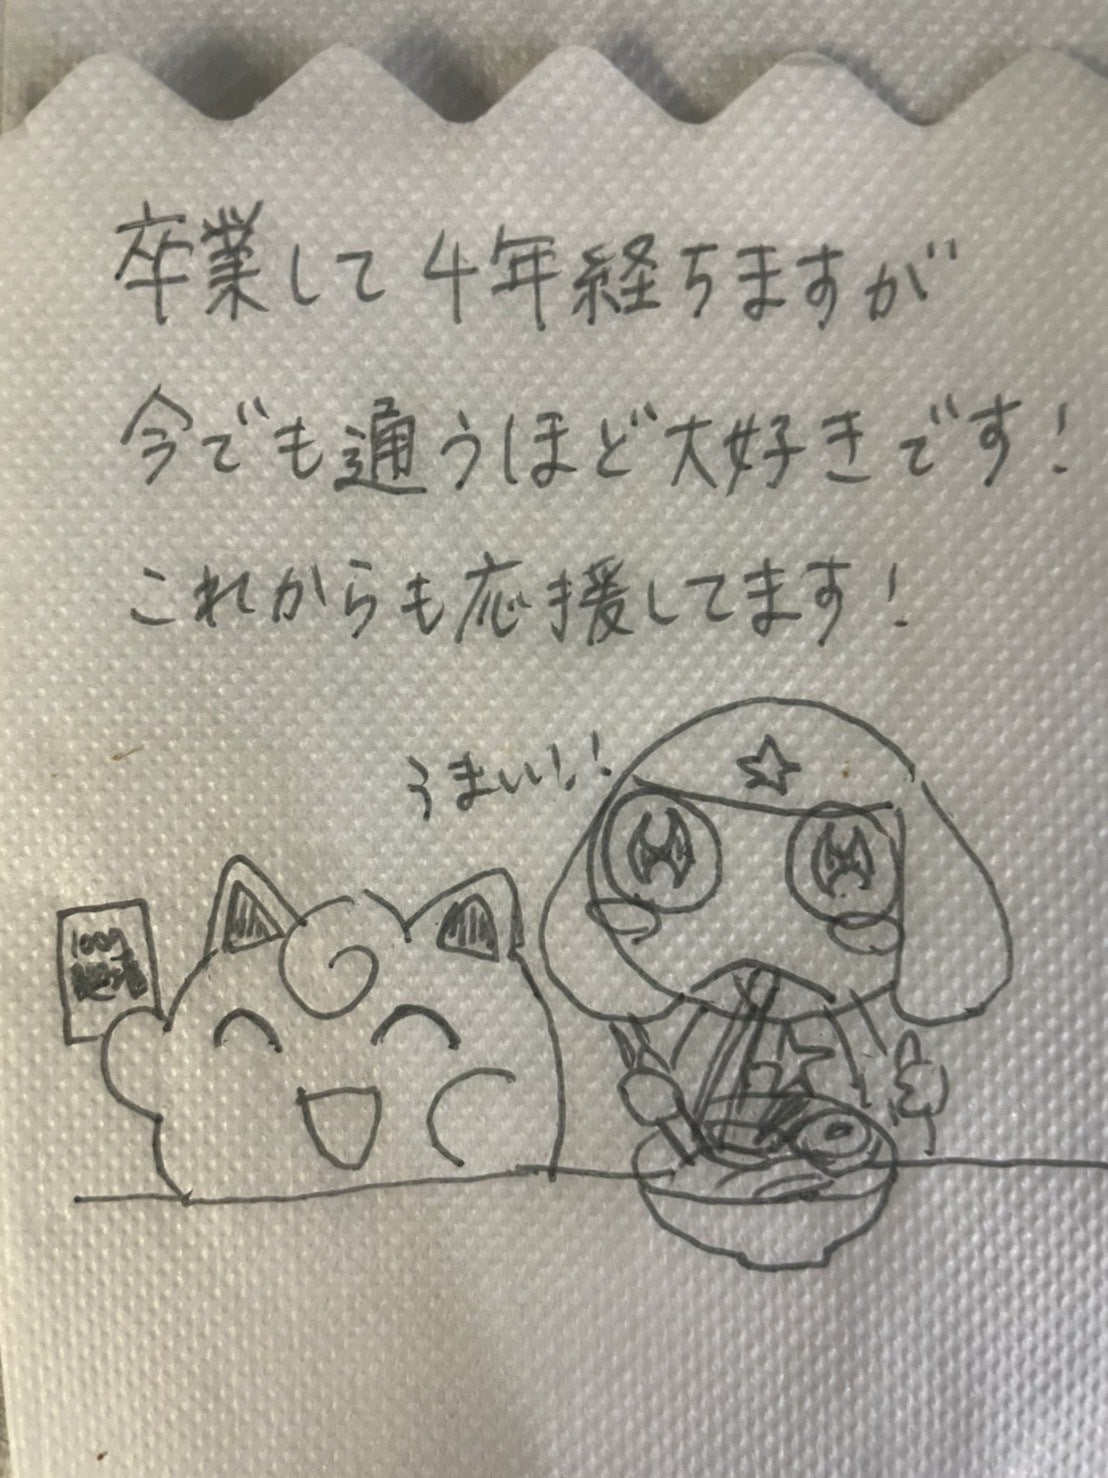 卒業して4年経ちますが
今でも通うほど大好きです!
これからも応援してます!
うまいい!!